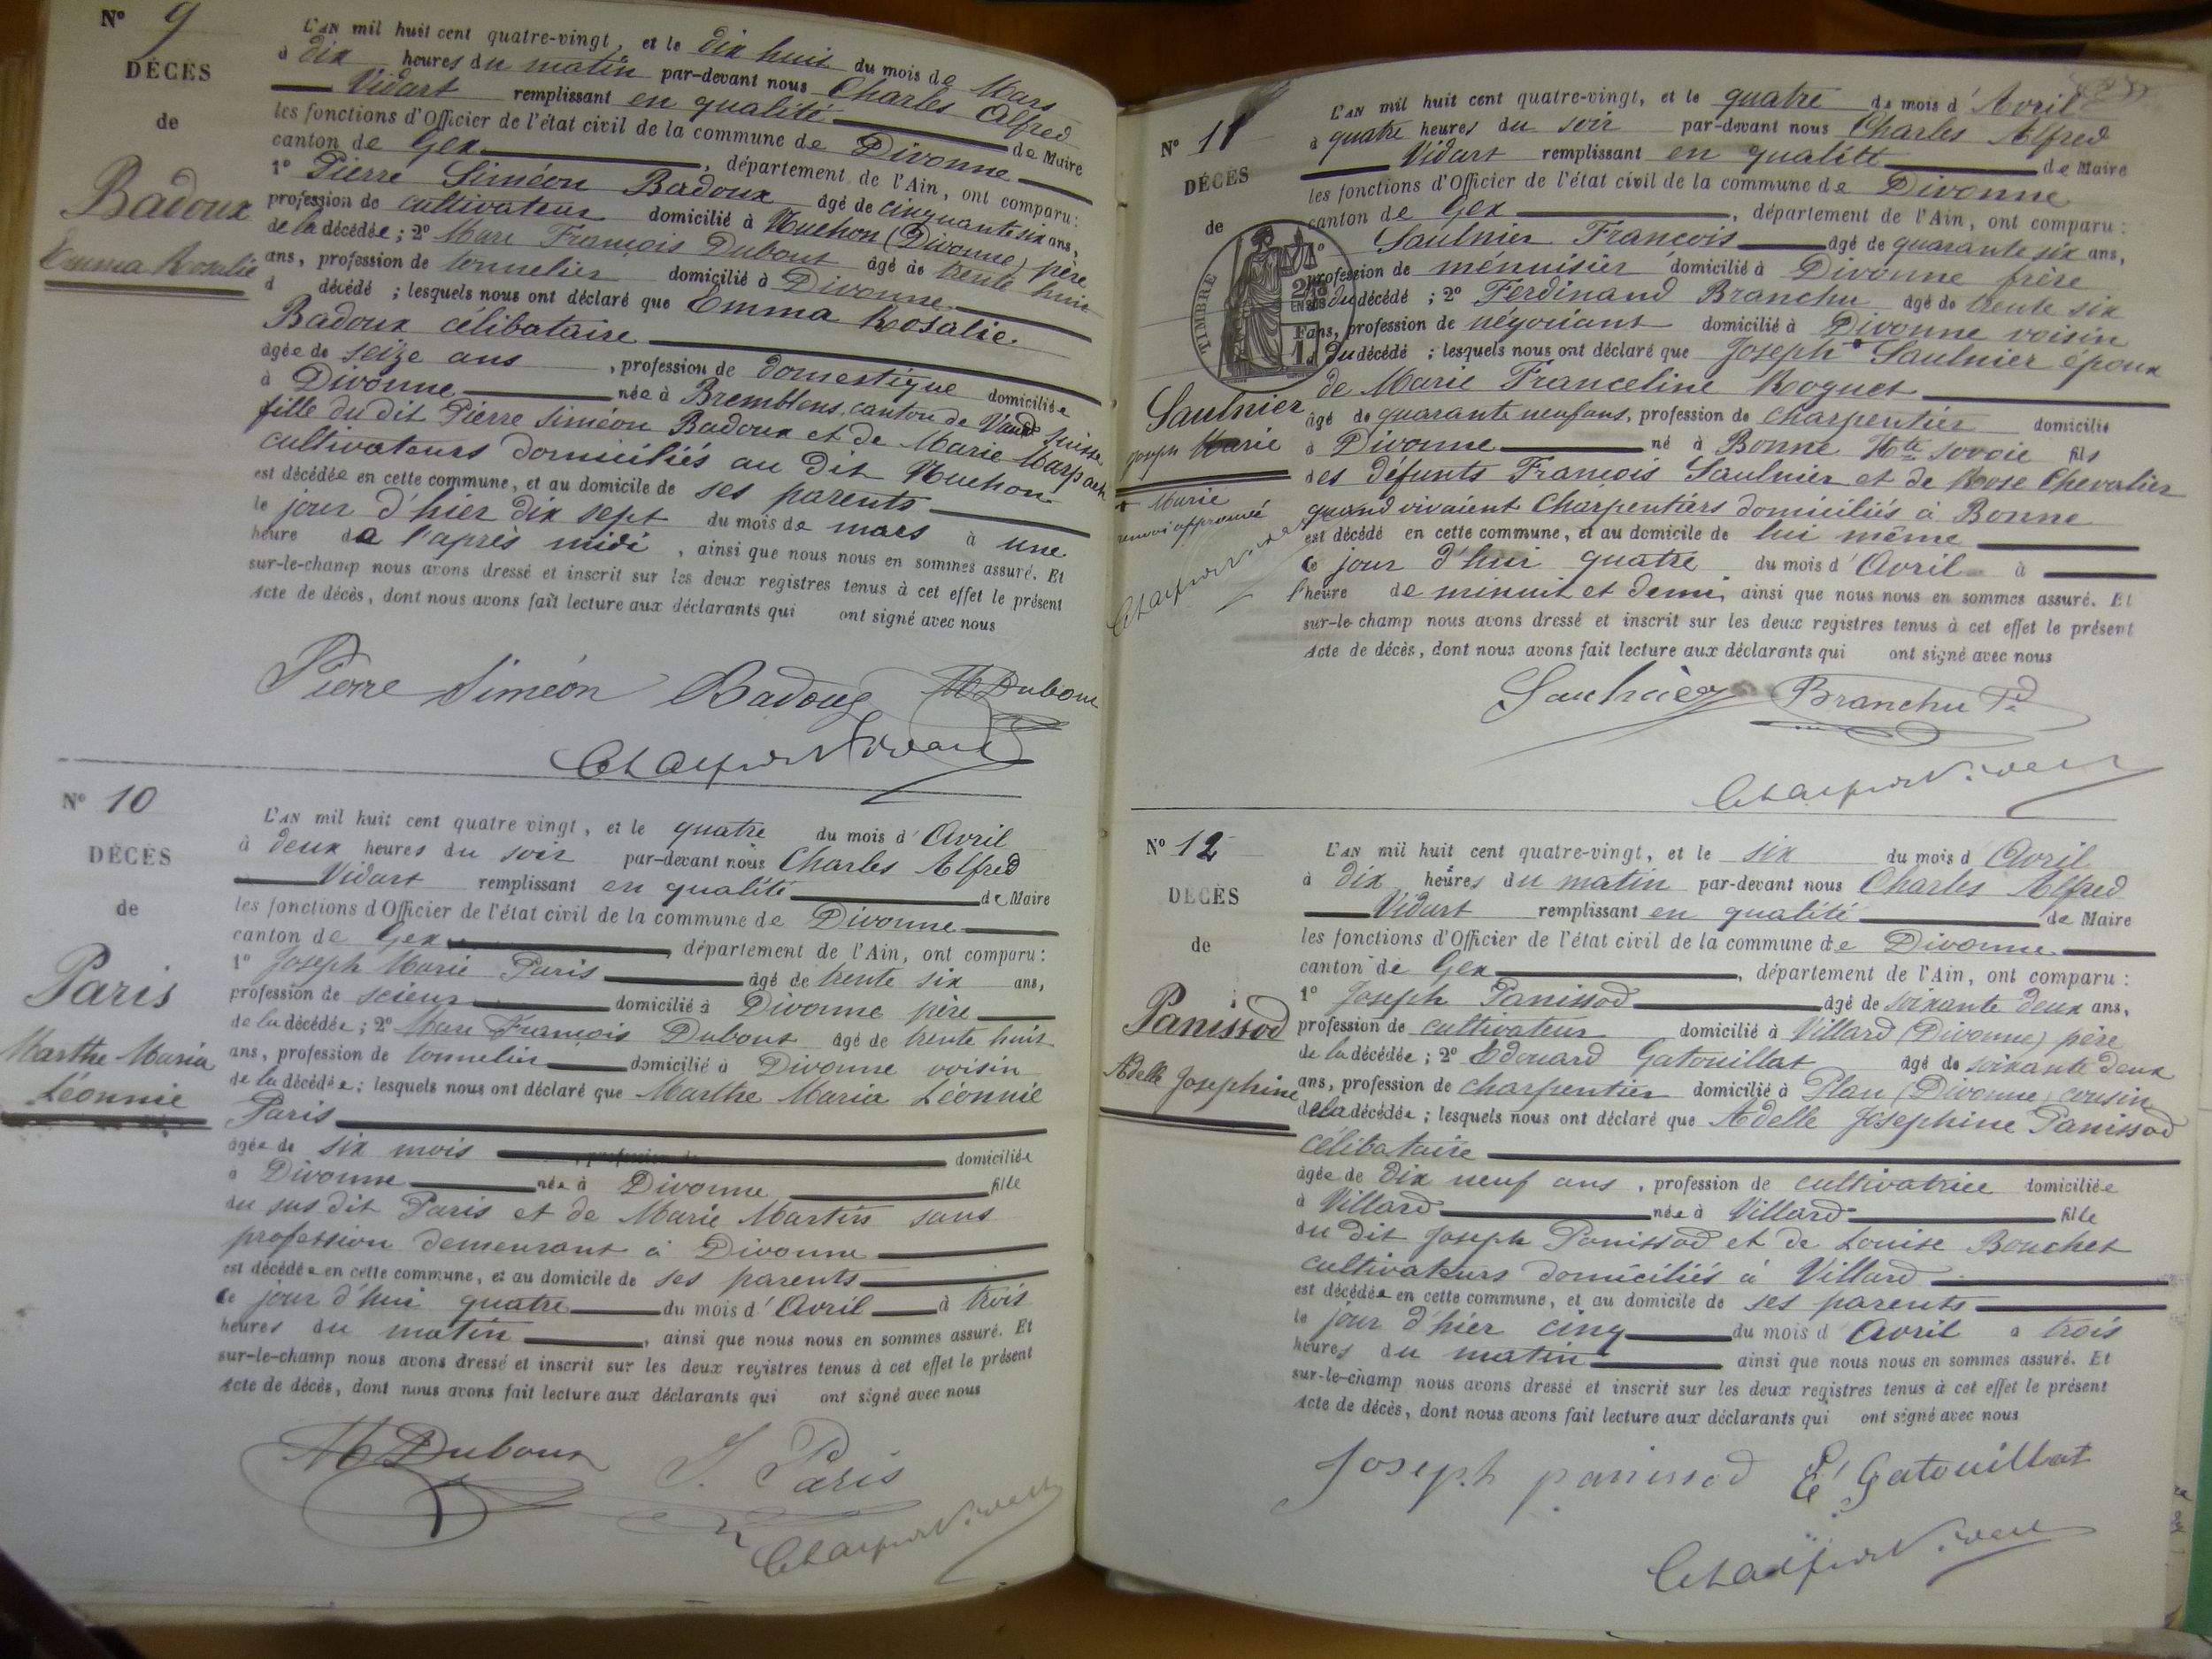 Nº 9
DÉCÈS
de
Badoux
Emma Rosalie
L'AN mil huit cent quatre-vingt, et le dix huit du mois de Mars
à dix heures du matin par-devant nous Charles Alfred
Vidart remplissant en qualité de Maire
les fonctions d'Officier de l'état civil de la commune de Divonne
canton de Gex, département de l'Ain, ont comparu:
1º Pierre Siméon Badoux âgé de cinquante six ans,
profession de cultivateur domicilié à Vuehon (Divonne) père
de la décédée; 2º Marc François Dubout âgé de trente huit
ans, profession de tonnelier domicilié à Divonne
d décédé; lesquels nous ont déclaré que Emma Rosalie
Badoux célibataire
âgée de seize ans, profession de domestique domiciliée
à Divonne née à Bremblens, canton de Vaud Suisse
fille du dit Pierre Siméon Badoux et de Marie Marpach
cultivateurs domiciliés au dit Vuehon
est décédée en cette commune, et au domicile de ses parents
le jour d'hier dix sept du mois de mars à une
heure de l'après midi, ainsi que nous nous en sommes assuré. Et
sur-le-champ nous avons dressé et inscrit sur les deux registres tenus à cet effet le présent
acte de décès, dont nous avons fait lecture aux déclarants qui ont signé avec nous
Pierre Siméon Badoux M Dubout
Ch Alfred Vidart
Nº 10
DÉCÈS
de
Paris
Marthe Maria
Léonnie
L'AN mil huit cent quatre vingt, et le quatre du mois d'Avril
à deux heures du soir par-devant nous Charles Alfred
Vidart remplissant en qualité de Maire
les fonctions d'Officier de l'état civil de la commune de Divonne
canton de Gex, département de l'Ain, ont comparu:
1º Joseph Marie Paris âgé de trente six ans,
profession de scieur domicilié à Divonne père
de la décédée; 2º Marc François Dubout âgé de trente huit
ans, profession de tonnelier domicilié à Divonne voisin
de la décédée; lesquels nous ont déclaré que Marthe Maria Léonnie
Paris
âgée de six mois, profession de domiciliée
à Divonne née à Divonne fille
du sus dit Paris et de Marie Martin sans
profession demeurant à Divonne
est décédée en cette commune, et au domicile de ses parents
ce jour d'hui quatre du mois d'Avril à trois
heures du matin, ainsi que nous nous en sommes assuré. Et
sur-le-champ nous avons dressé et inscrit sur les deux registres tenus à cet effet le présent
acte de décès, dont nous avons fait lecture aux déclarants qui ont signé avec nous
M Dubout J. Paris
Ch Alfred Vidart
Nº 11
DÉCÈS
de
TIMBRE
Saulnier
Joseph Marie
+ Marie
renvoi approuvé
Ch Alfred Vidart
L'AN mil huit cent quatre-vingt, et le quatre du mois d'Avril
à quatre heures du soir par-devant nous Charles Alfred
Vidart remplissant en qualité de Maire
les fonctions d'Officier de l'état civil de la commune de Divonne
canton de Gex, département de l'Ain, ont comparu:
1º Saulnier François âgé de quarante six ans,
profession de ménuisier domicilié à Divonne frère
du décédé; 2º Ferdinand Branchu âgé de trente six
ans, profession de négociant domicilié à Divonne voisin
du décédé; lesquels nous ont déclaré que Joseph + Saulnier époux
de Marie Franceline Roguet
âgé de quarante neuf ans, profession de charpentier domicilié
à Divonne né à Bonne Hte savoie fils
des défunts François Saulnier et de Rose Chevalier
quand vivaient Charpentiers domiciliés à Bonne
est décédé en cette commune, et au domicile de lui même
ce jour d'hui quatre du mois d'Avril à
l'heure de minuit et demi, ainsi que nous nous en sommes assuré. Et
sur-le-champ nous avons dressé et inscrit sur les deux registres tenus à cet effet le présent
acte de décès, dont nous avons fait lecture aux déclarants qui ont signé avec nous
Saulnier Branchu Fd
Ch Alfred Vidart
Nº 12
DÉCÈS
de
Panissod
Adelle Josephine
L'AN mil huit cent quatre-vingt, et le six du mois d'Avril
à dix heures du matin par-devant nous Charles Alfred
Vidart remplissant en qualité de Maire
les fonctions d'Officier de l'état civil de la commune de Divonne
canton de Gex, département de l'Ain, ont comparu:
1º Joseph Panissod âgé de soixante deux ans,
profession de cultivateur domicilié à Villard (Divonne) père
de la décédée; 2º Edouard Gatouillat âgé de soixante deux
ans, profession de charpentier domicilié à Plan (Divonne) cousin
de la décédée; lesquels nous ont déclaré que Adelle Josephine Panissod
célibataire
âgée de dix neuf ans, profession de cultivatrice domiciliée
à Villard née à Villard fille
du dit Joseph Panissod et de Louise Bouchet
cultivateurs domiciliés à Villard
est décédée en cette commune, et au domicile de ses parents
le jour d'hier cinq du mois d'Avril à trois
heures du matin ainsi que nous nous en sommes assuré. Et
sur-le-champ nous avons dressé et inscrit sur les deux registres tenus à cet effet le présent
acte de décès, dont nous avons fait lecture aux déclarants qui ont signé avec nous
Joseph panissod E Gatouillat
Ch Alfred Vidart